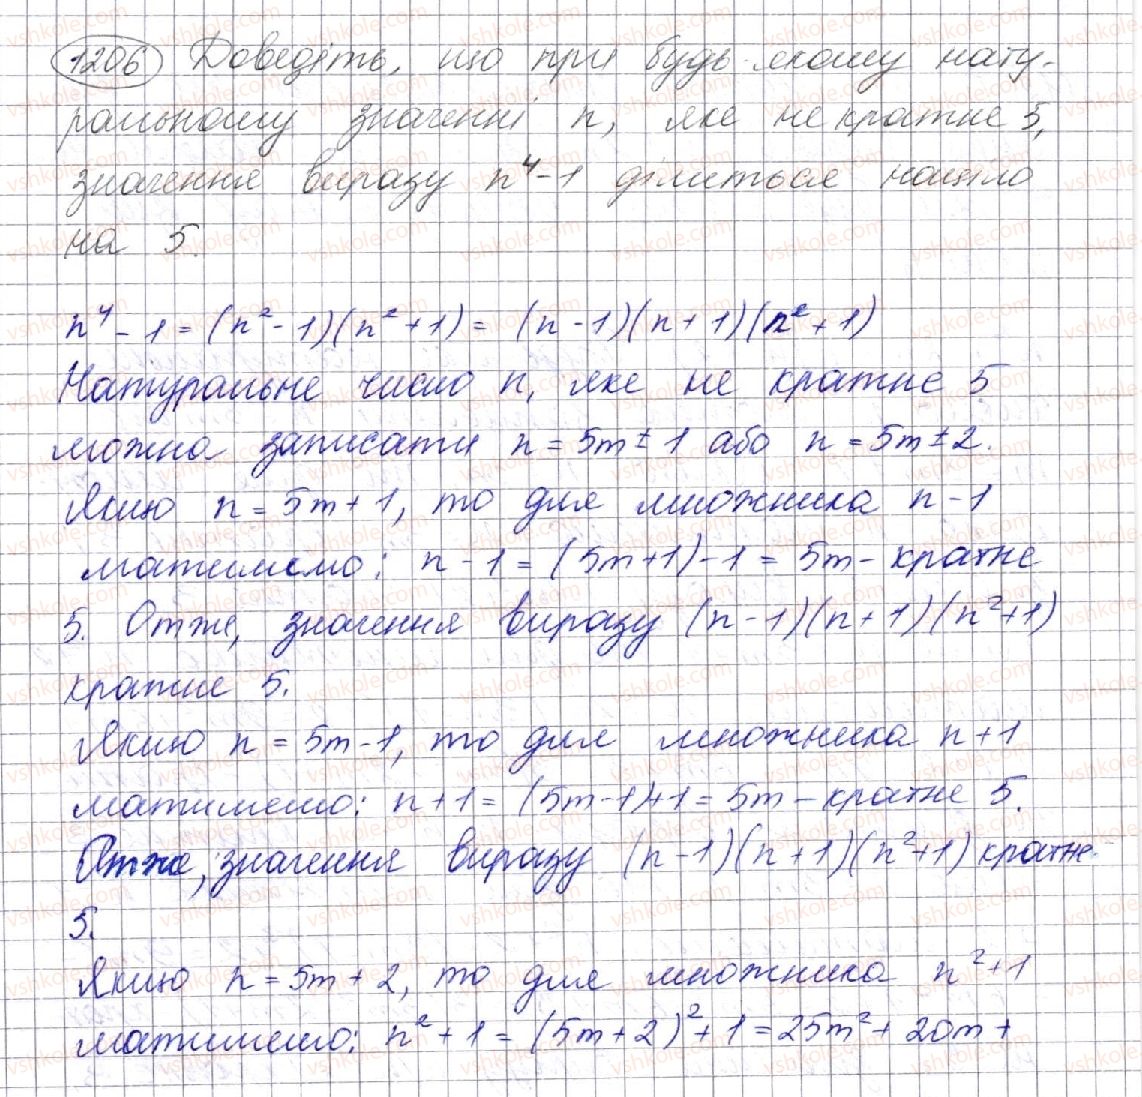 1206 Доведіть, що при будь-якому нату-
ральному значенні n, яке не кратне 5,
значення виразу n⁴-1 ділиться націло
на 5.
n⁴ - 1 = (n² - 1)(n² + 1) = (n - 1)(n + 1)(n² + 1)
Натуральне число n, яке не кратне 5
можна записати n = 5m ± 1 або n = 5m ± 2.
Якщо n = 5m + 1, то для множника n - 1
матимемо: n - 1 = (5m+1) - 1 = 5m - кратне
5. Отже, значення виразу (n - 1)(n + 1)(n²+1)
кратне 5.
Якщо n = 5m - 1, то для множника n + 1
матимемо: n + 1 = (5m - 1)+1 = 5m - кратне 5.
Отже, значення виразу (n - 1)(n + 1)(n²+1) кратне
5.
Якщо n = 5m + 2, то для множника n²+1
матимемо: n² + 1 = (5m + 2)² + 1 = 25m² + 20m +